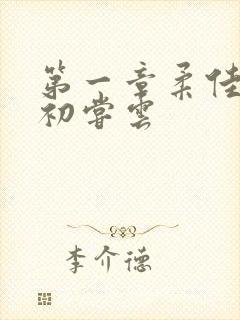 第一章柔佳
初尝云
李介德